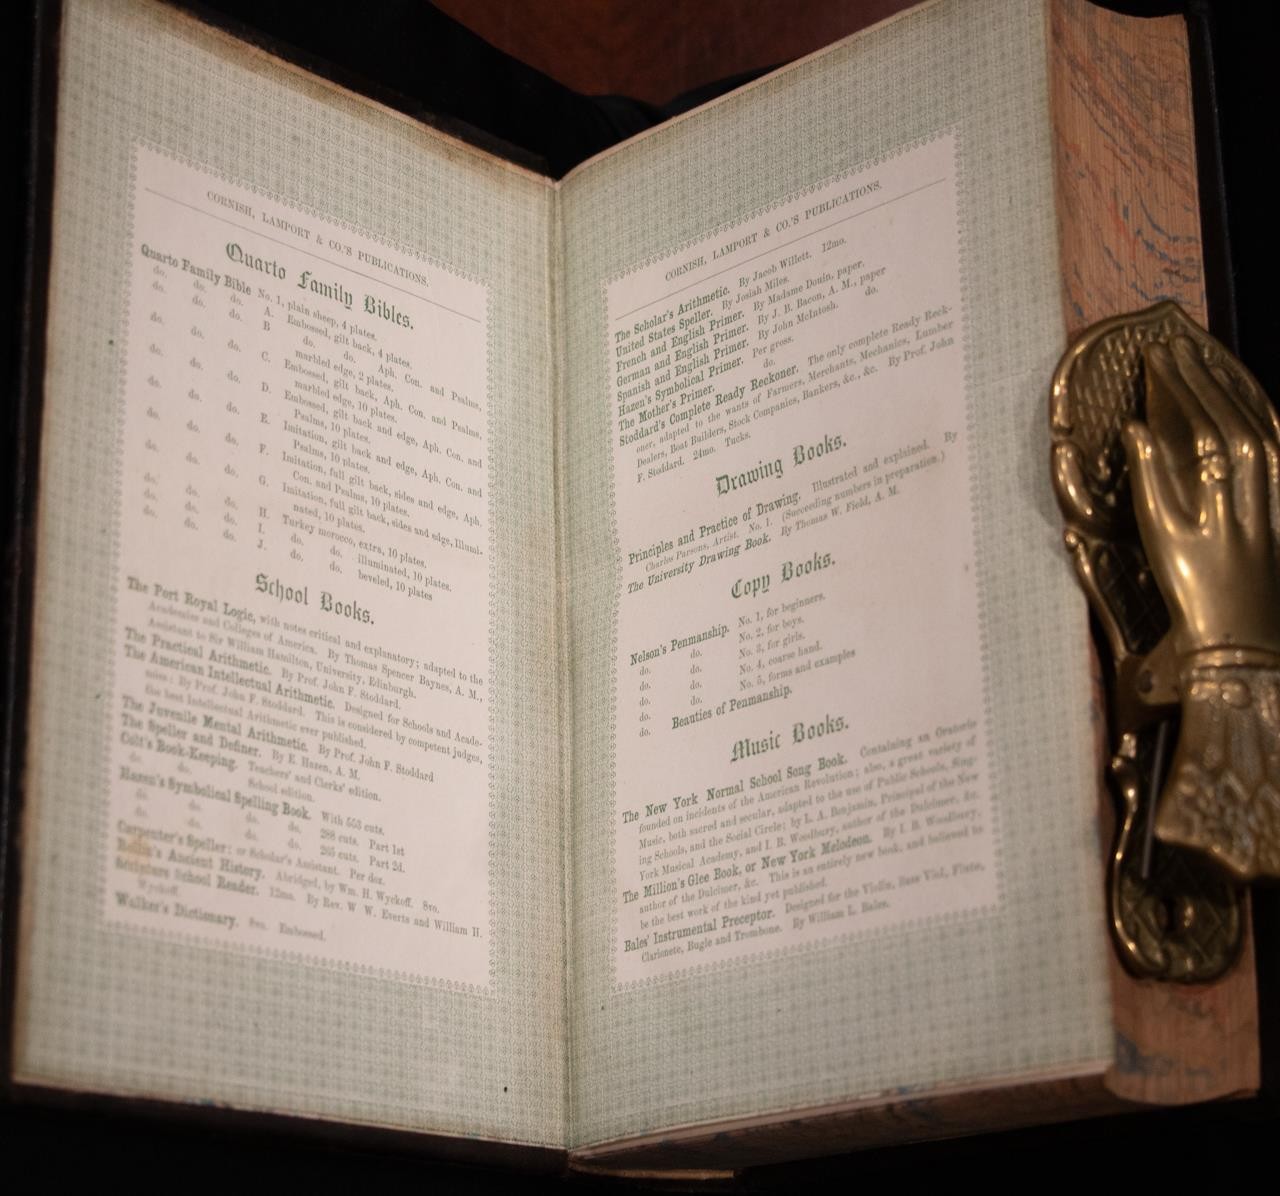 CORNISH, LAMPORT & CO.'S PUBLICATIONS.
Quarto Family Bibles.
Quarto Family Bible No. 1, plain sheep, 4 plates.
do. do. do. A. Embossed, gilt back, 4 plates.
do. do. do. B do. do. Aph. Con. and Psalms,
marbled edge, 2 plates.
do. do. do. C. Embossed, gilt back, Aph. Con. and Psalms,
marbled edge, 10 plates.
do. do. do. D. Embossed, gilt back and edge, Aph. Con. and
Psalms, 10 plates.
do. do. do. E. Imitation, gilt back and edge, Aph. Con. and
Psalms, 10 plates.
do. do. do. F. Imitation, full gilt back, sides and edge, Aph.
Con. and Psalms, 10 plates.
do. do. do. G. Imitation, full gilt back, sides and edge, Illumi-
nated, 10 plates.
do. do. do. H. Turkey morocco, extra, 10 plates.
do. do. do. I. do. do. illuminated, 10 plates.
do. do. do. J. do. do. beveled, 10 plates
School Books.
The Port Royal Logic, with notes critical and explanatory; adapted to the
Academies and Colleges of America. By Thomas Spencer Baynes, A. M.,
Assistant to Sir William Hamilton, University, Edinburgh.
The Practical Arithmetic. By Prof. John F. Stoddard.
The American Intellectual Arithmetic. Designed for Schools and Acade-
mies: By Prof. John F. Stoddard. This is considered by competent judges,
the best Intellectual Arithmetic ever published.
The Juvenile Mental Arithmetic. By Prof. John F. Stoddard
The Speller and Definer. By E. Hazen, A. M.
Colt's Book-Keeping. Teachers' and Clerks' edition.
do. do. School edition.
Hazen's Symbolical Spelling Book. With 553 cuts.
do. do. do. do. 288 cuts. Part 1st
do. do. do. do. 265 cuts. Part 2d.
Carpenter's Speller; or Scholar's Assistant. Per doz.
Rollin's Ancient History. Abridged, by Wm. H. Wyckoff. 8vo.
Scripture School Reader. 12mo. By Rev. W W. Everts and William H.
Wyckoff.
Walker's Dictionary. 8vo. Embossed.
CORNISH, LAMPORT & CO.'S PUBLICATIONS.
The Scholar's Arithmetic. By Jacob Willett. 12mo.
United States Speller. By Josiah Miles.
French and English Primer. By Madame Douin, paper.
German and English Primer. By J. B. Bacon, A. M., paper
Spanish and English Primer. By John McIntosh. do.
Hazen's Symbolical Primer. Per gross.
The Mother's Primer. do.
Stoddard's Complete Ready Reckoner. The only complete Ready Reck-
oner, adapted to the wants of Farmers, Merchants, Mechanics, Lumber
Dealers, Boat Builders, Stock Companies, Bankers, &c., &c. By Prof. John
F. Stoddard. 24mo. Tucks.
Drawing Books.
Principles and Practice of Drawing. Illustrated and explained. By
Charles Parsons, Artist. No. 1. (Succeeding numbers in preparation.)
The University Drawing Book. By Thomas W. Field, A. M.
Copy Books.
Nelson's Penmanship. No. 1, for beginners.
do. do. No. 2, for boys.
do. do. No. 3, for girls.
do. do. No. 4, coarse hand.
do. do. No. 5, forms and examples
do. Beauties of Penmanship.
Music Books.
The New York Normal School Song Book. Containing an Oratorio
founded on incidents of the American Revolution; also, a great variety of
Music, both sacred and secular, adapted to the use of Public Schools, Sing-
ing Schools, and the Social Circle; by L. A. Benjamin, Principal of the New
York Musical Academy, and I. B. Woodbury, author of the Dulcimer, &c.
The Million's Glee Book, or New York Melodeon. By I. B. Woodbury,
author of the Dulcimer, &c. This is an entirely new book, and believed to
be the best work of the kind yet published.
Bales' Instrumental Preceptor. Designed for the Violin, Bass Viol, Flute,
Clarionete, Bugle and Trombone. By William L. Bales.